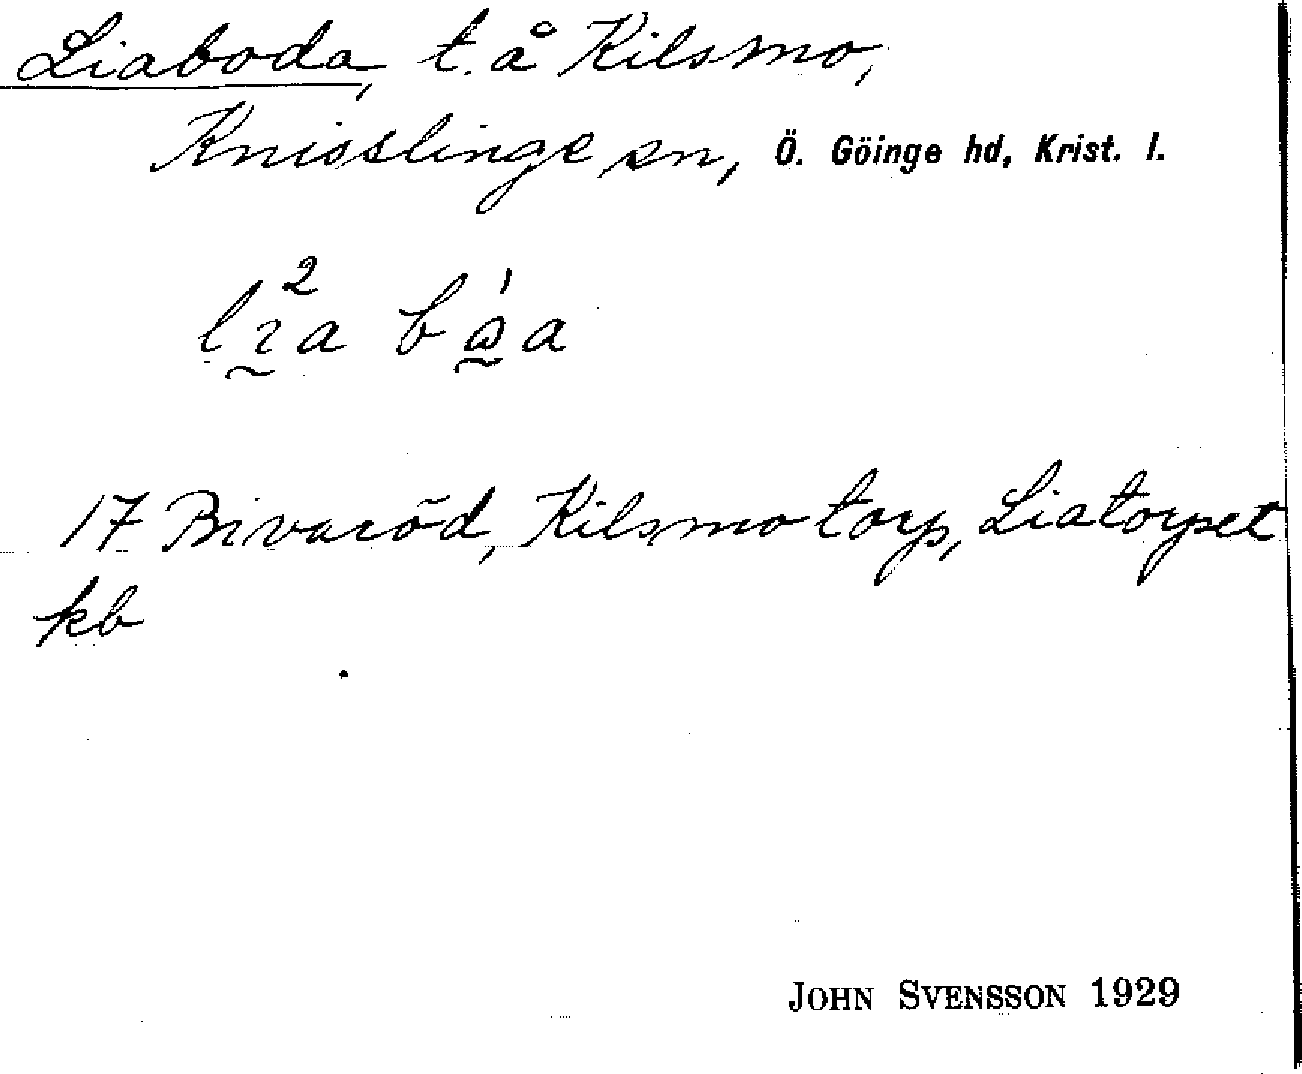 Liaboda, t. å Kilsmo,
Knisslinge sn, Ö. Göinge hd, Krist. l.
17 Bivaröd, Kilsmo torp, Liatorpet
kb
JOHN SVENSSON 1929